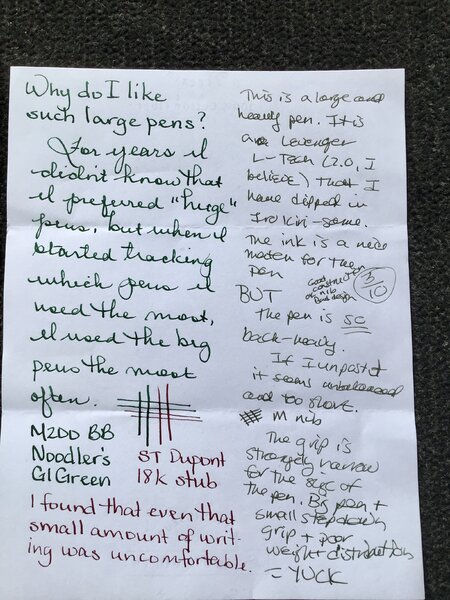 Why do I like
such large pens?
For years I
didn't know that
I preferred "huge"
pens, but when I
started tracking
which pens I
used the most,
I used the big
pens the most
often.
M200 BB
Noodler's
GI Green
ST Dupont
18k stub
I found that even that
small amount of writ-
ing was uncomfortable.
This is a large and
heavy pen. It is
a Levenger
L-Tech (2.0, I
believe) that I
have dipped in
Iro
The ink is a nice
match for the
pen
Good
construction
nib
3/10
BUT
the pen is so
back-heavy.
If I unpost
it seems unbalanced
and too short.
M nib
The grip is
strangely narrow
for the size of
the pen. Big pen +
small step down
grip + poor
weight distribution
= YUCK